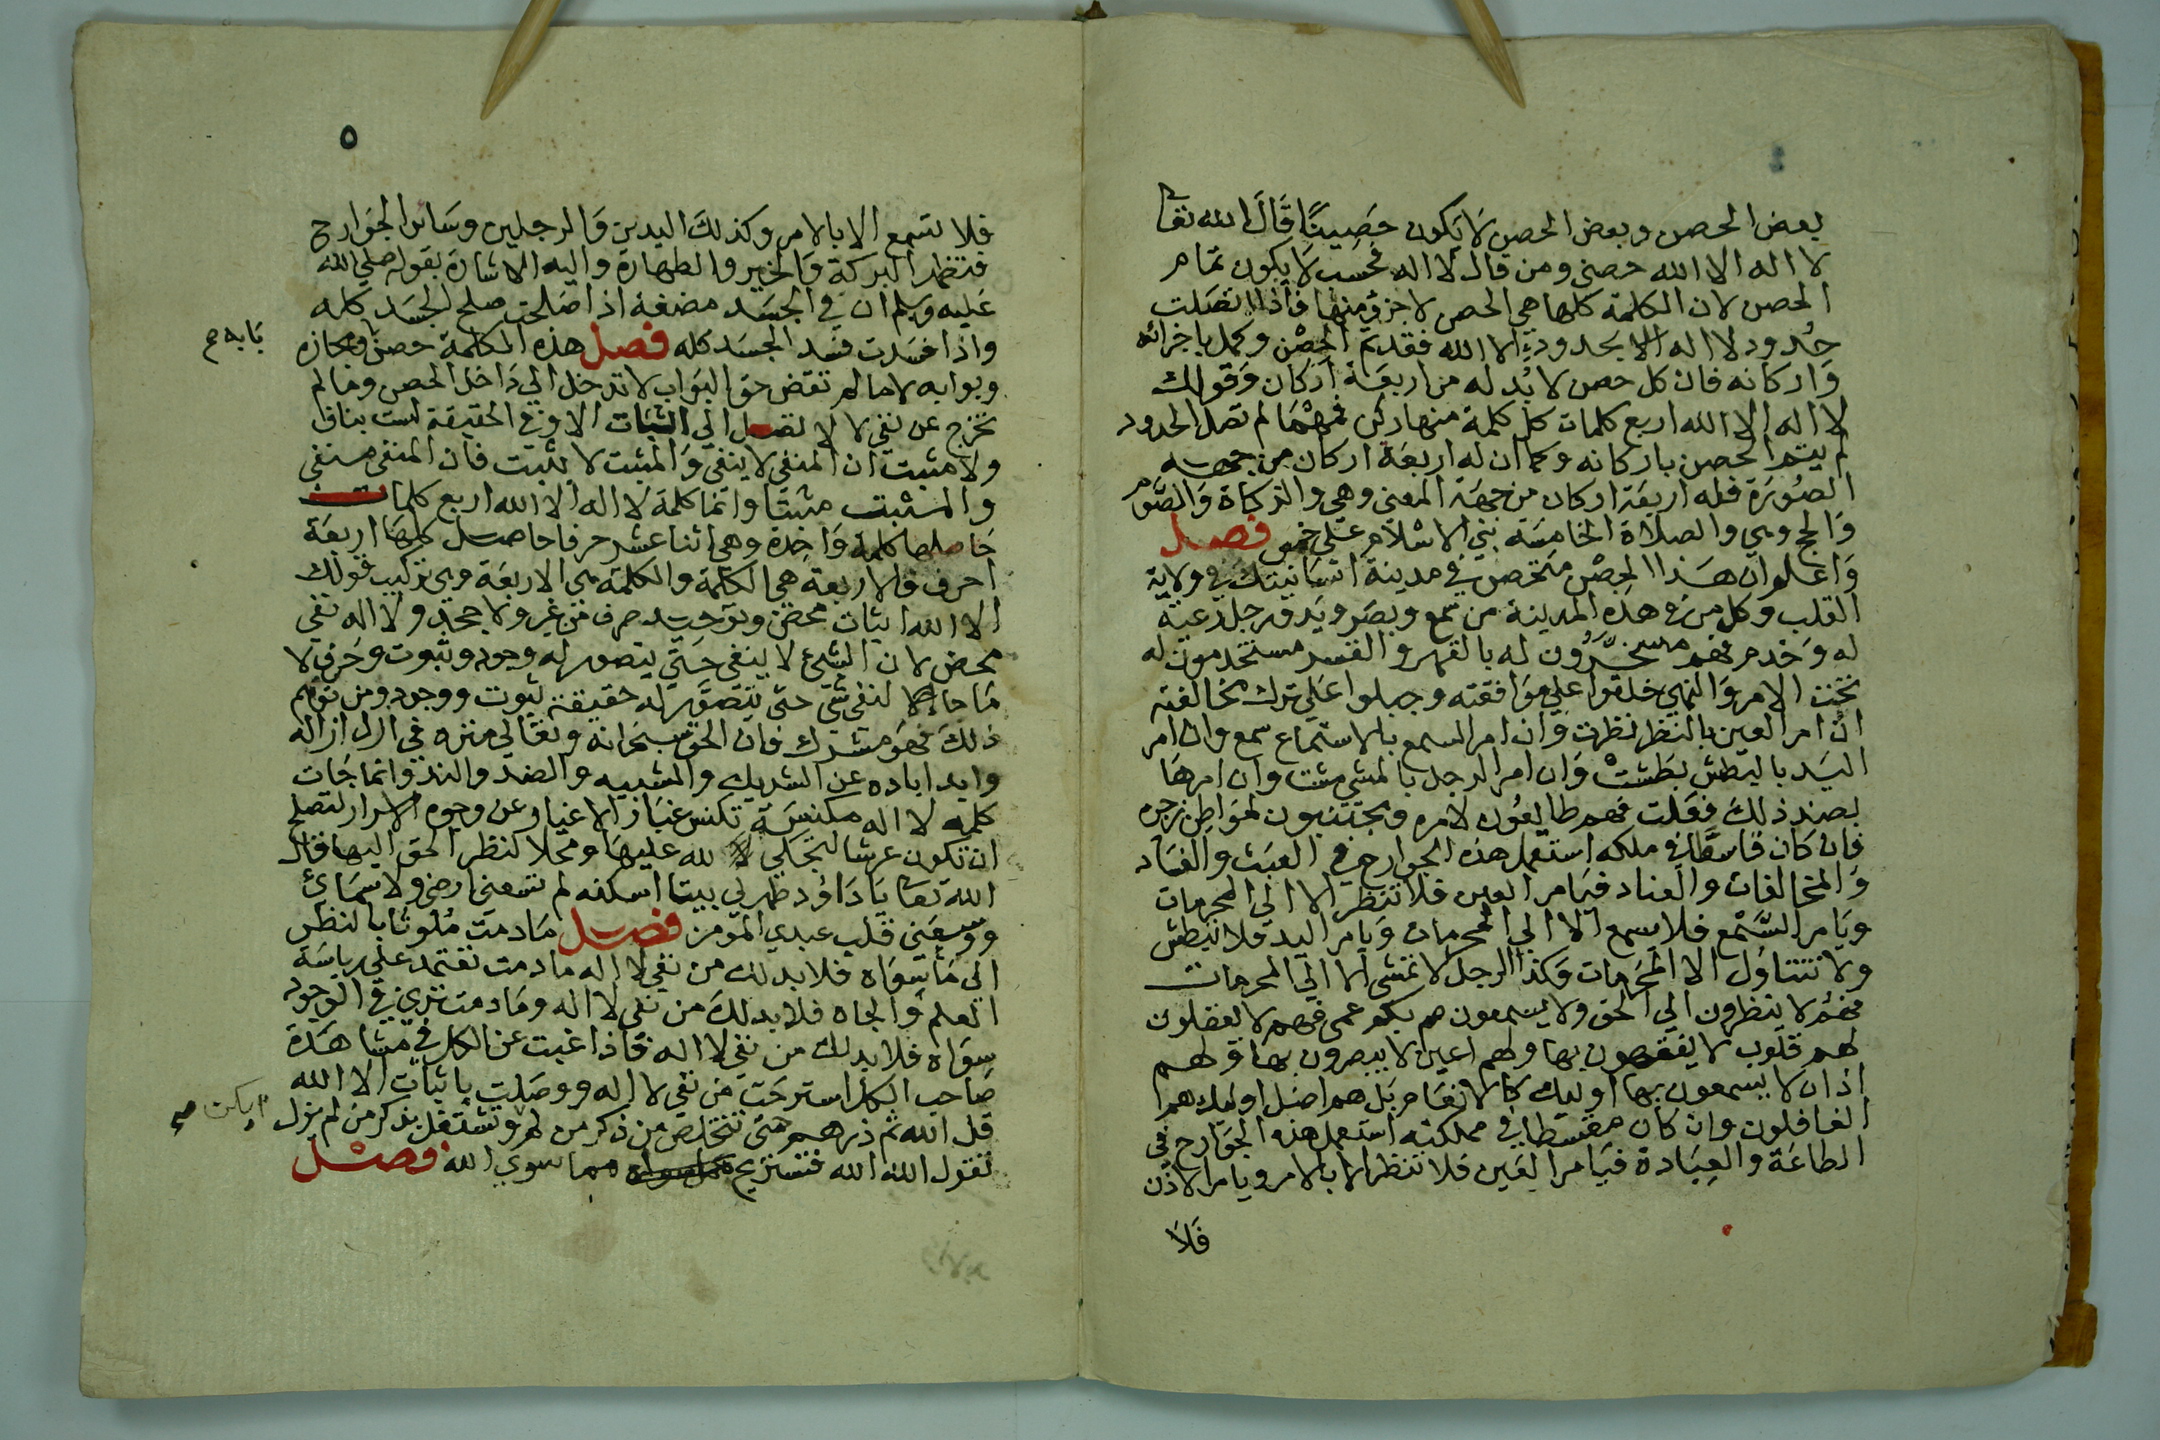 بعض الحصن وبعض الحصن لا يكون حصينا قال الله تعا
لا اله الا الله حصني ومن قال لا اله فحسب لا يكون تمام
الحصن لان الكلمة كلها هي الحصن لا جزؤ منها فاذا اتصلت
حدود لا اله الا بحدود الا الله فقد تم الحصن وكمل باجزائه
واركانه فان كل حصن لا بد له من اربعة اركان وقولك
لا اله الا الله اربع كلمات كل كلمة منها ركن فمهما لم تصل الحدود
لم يتم الحصن باركانه وكما ان له اربعة اركان من جهة
الصورة فله اربعة اركان من جهة المعنى وهي والزكاة والصوم
والحج وهي والصلاة الخامسة بني الاسلام على خمس فصل
واعلوان هذا الحصن متحصن في مدينة انسانيتك في ولاية
القلب وكل من في هذه المدينة من سمع وبصر ويد ورجل رعية
له وخدم فهم مسخرون له بالقهر والقسر مستخدمون له
تحت الامر والنهي خلقوا على موافقته وجبلوا على ترك مخالفته
ان امر العين بالنظر نظرت وان امر السمع بالاستماع سمع وان امر
اليد بالبطش بطشت وان امر الرجل بالمشي مشت وان امرها
بضد ذلك فعلت فهم طايعون لامره ومجتنبون لمواطن زجره
فان كان قاسطا في ملكه استعمل هذه الجوارح في العبث والفساد
والمخالفات والعناد فيامر العين فلا تنظر الا الى المحرمات
ويامر السمع فلا يسمع الا الى المحرمات ويامر اليد فلا تبطش
ولا تتناول الا المحرمات وكذا الرجل لا تمشي الا الى المحرمات
فهم لا ينظرون الى الحق ولا يسمعون صم بكم عمي فهم لا يعقلون
لهم قلوب لا يفقهون بها ولهم اعين لا يبصرون بها ولهم
اذان لا يسمعون بها اوليك كالانعام بل هم اضل اوليك هم
الغافلون وان كان مقسطا في مملكته استعمل هذه الجوارح في
الطاعة والعبادة فيامر العين فلا تنظر الا بالامر ويامر الاذن
فلا
٥
فلا تسمع الا بالامر وكذلك اليدين والرجلين وسائر الجوارح
فتظهر البركة والخير والطهارة واليه الاشارة بقوله صلى الله
عليه وسلم ان في الجسد مضغة اذا صلحت صلح الجسد كله
واذا فسدت فسد الجسد كله فصل هذه الكلمة حصن ومجازه
بابه
وبوابه لا ما لم تقض حق البواب لا تدخل الى داخل الحصن وما لم
تخرج عن نفي لا لا تصل الى اثبات الا وفي الحقيقة ليست بناف
ولا مثبت ان المنفي لا ينفي والمثبت لا يثبت فان المنفي منفي
والمثبت مثبتا وانما كلمة لا اله الا الله اربع كلمات
حاصلها كلمة واحدة وهي اثنا عشر حرفا حاصل كلها اربعة
احرف والاربعة هي الكلمة والكلمة هي الاربعة وهي تركيب قولك
الا الله اثبات محض وتوحيد صرف من غير ولا جحد ولا اله نفي
محض لان الشيء لا ينفى حتى يتصور له وجود وثبوت وحرف لا
ما جا لنفي شي حتى يتصور له حقيقة ثبوت ووجود ومن توهم
ذلك فهو مشرك فان الحق سبحانه وتعالى منزه في ازل ازاله
وابد اباده عن الشريك والشبيه والضد والند وانما جات
كلمة لا اله مكنسة تكنس غبار الاغيار عن وجوه الاسرار لتصلح
ان تكون عرشا لتجلي الله عليها ومحلا لنظر الحق اليها قال
الله تعا يا داؤد طهر لي بيتا اسكنه لم تسعني ارضي ولا سمائ
ووسعني قلب عبدي المؤمن فصل ما دمت ملوثا بالنظر
الى ما سواه فلا بد لك من نفي لا اله ما دمت تعتمد على رياسة
العلم والجاه فلا بد لك من نفي لا اله وما دمت ترى في الوجود
سواه فلا بد لك من نفي لا اله فاذا غبت عن الكل في مشاهدة
صاحب الكل استرحت من نفي لا اله ووصلت باثبات الا الله
قل الله ثم ذرهم متى تتخلص من ذكر من لم وتشتغل بذكر من لم يزل
يكن
تقول الله الله فتستريح مما سوى الله فصل